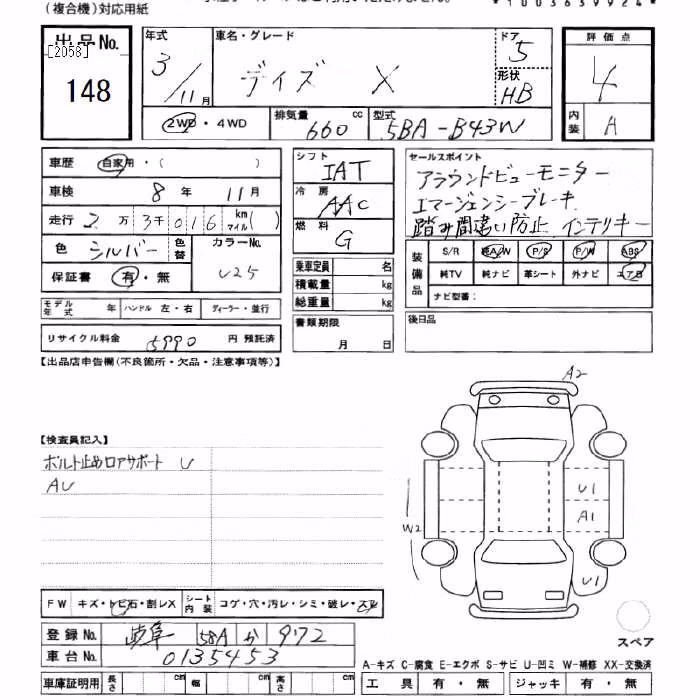 (複合機)対応用紙
*1003639924*
出品No.
[2058]
148
年式
3/11月
車名・グレード
デイズ X
ドア
5
形状
HB
評価点
4
内装
A
2WD・4WD
排気量 660 cc
型式 5BA-B43W
車歴 自家用・( )
車検 8年 11月
走行 2万3千016 km マイル( )
色 シルバー 色替
カラーNo. U25
保証書 有・無
シフト IAT
冷房 AAC
燃料 G
乗車定員 名
積載量 kg
総重量 kg
書類期限 月 日
セールスポイント
アラウンドビューモニター
エマージェンシーブレーキ
踏み間違い防止 インテリキー
装備品
S/R 純A/W P/S P/W ABS
純TV 純ナビ 革シート 外ナビ エアB
ナビ型番:
後日品
モデル年式 年 ハンドル 左・右 ディーラー・並行
リサイクル料金 5990 円 預託済
【出品店申告欄(不良箇所・欠品・注意事項等)】
【検査員記入】
ボルト止めロアサポート U
AU
A2
U1
A1
W2
U1
FW キズ・トビ石・割レX
シート内装 コゲ・穴・汚レ・シミ・破レ・スレ
登録No. 岐阜 58A か 972
車台No. 0135453
車庫証明用 長さ cm 幅 cm 高さ cm
スペア
A-キズ C-腐食 E-エクボ S-サビ U-凹ミ W-補修 XX-交換済
工具 有・無 ジャッキ 有・無